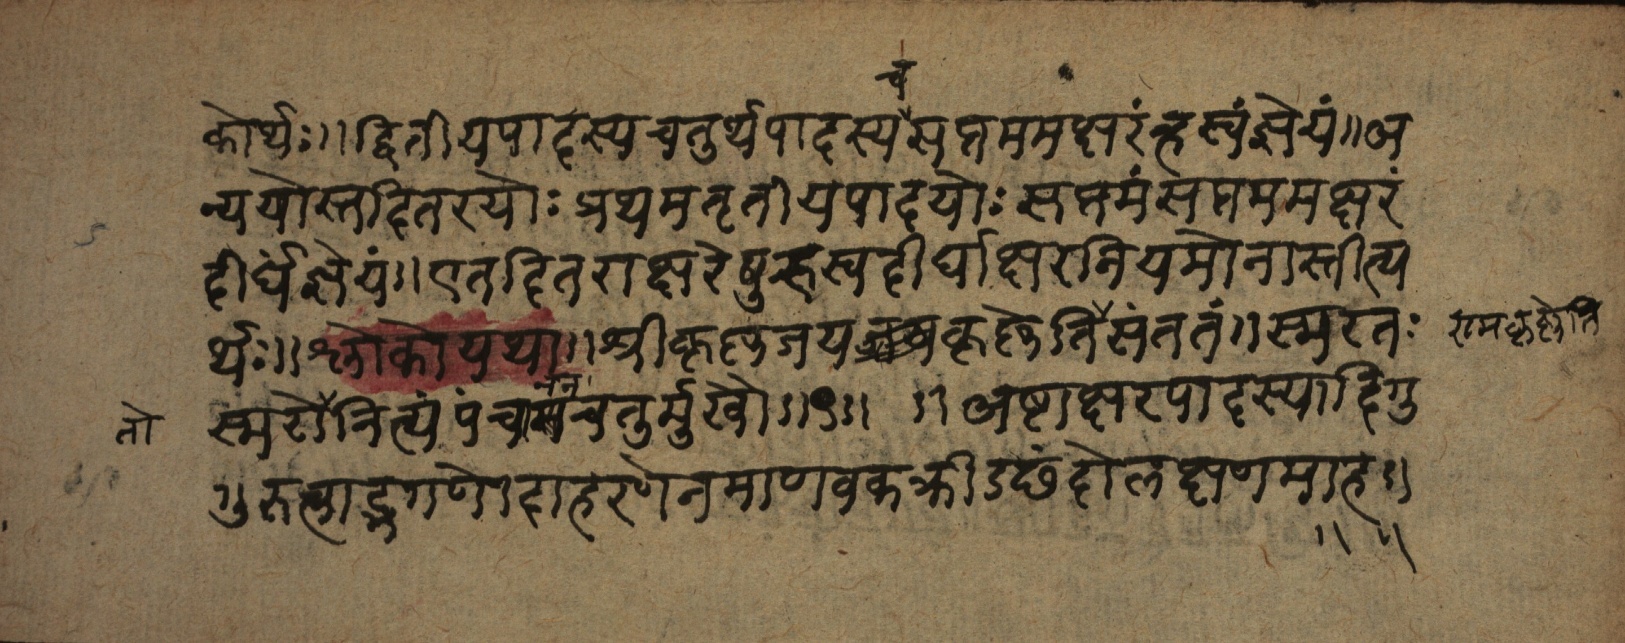 च
कोर्थः ॥ द्वितीयपादस्य चतुर्थपादस्य सप्तममक्षरं ह्रस्वं ज्ञेयं ॥ अ
न्ययोस्तदितरयोः प्रथमतृतीयपादयोः सप्तमं सप्तममक्षरं
दीर्घं ज्ञेयं ॥ एतदितराक्षरेषु ह्रस्वदीर्घाक्षरनियमो नास्तीत्य
र्थः ॥ श्लोको यथा ॥ श्रीकृष्ण जय कृष्णेति संततं ॥ स्मरतः रामकृष्णेति
तो स्मरो नित्यं पंचानन चतुर्मुखौ ॥ ९ ॥ ॥ अष्टाक्षरपादस्यादिगु
गुरुत्वाद्भगणोदाहरणेन माणवकक्रीडछंदोलक्षणमाह ॥
॥ ॥